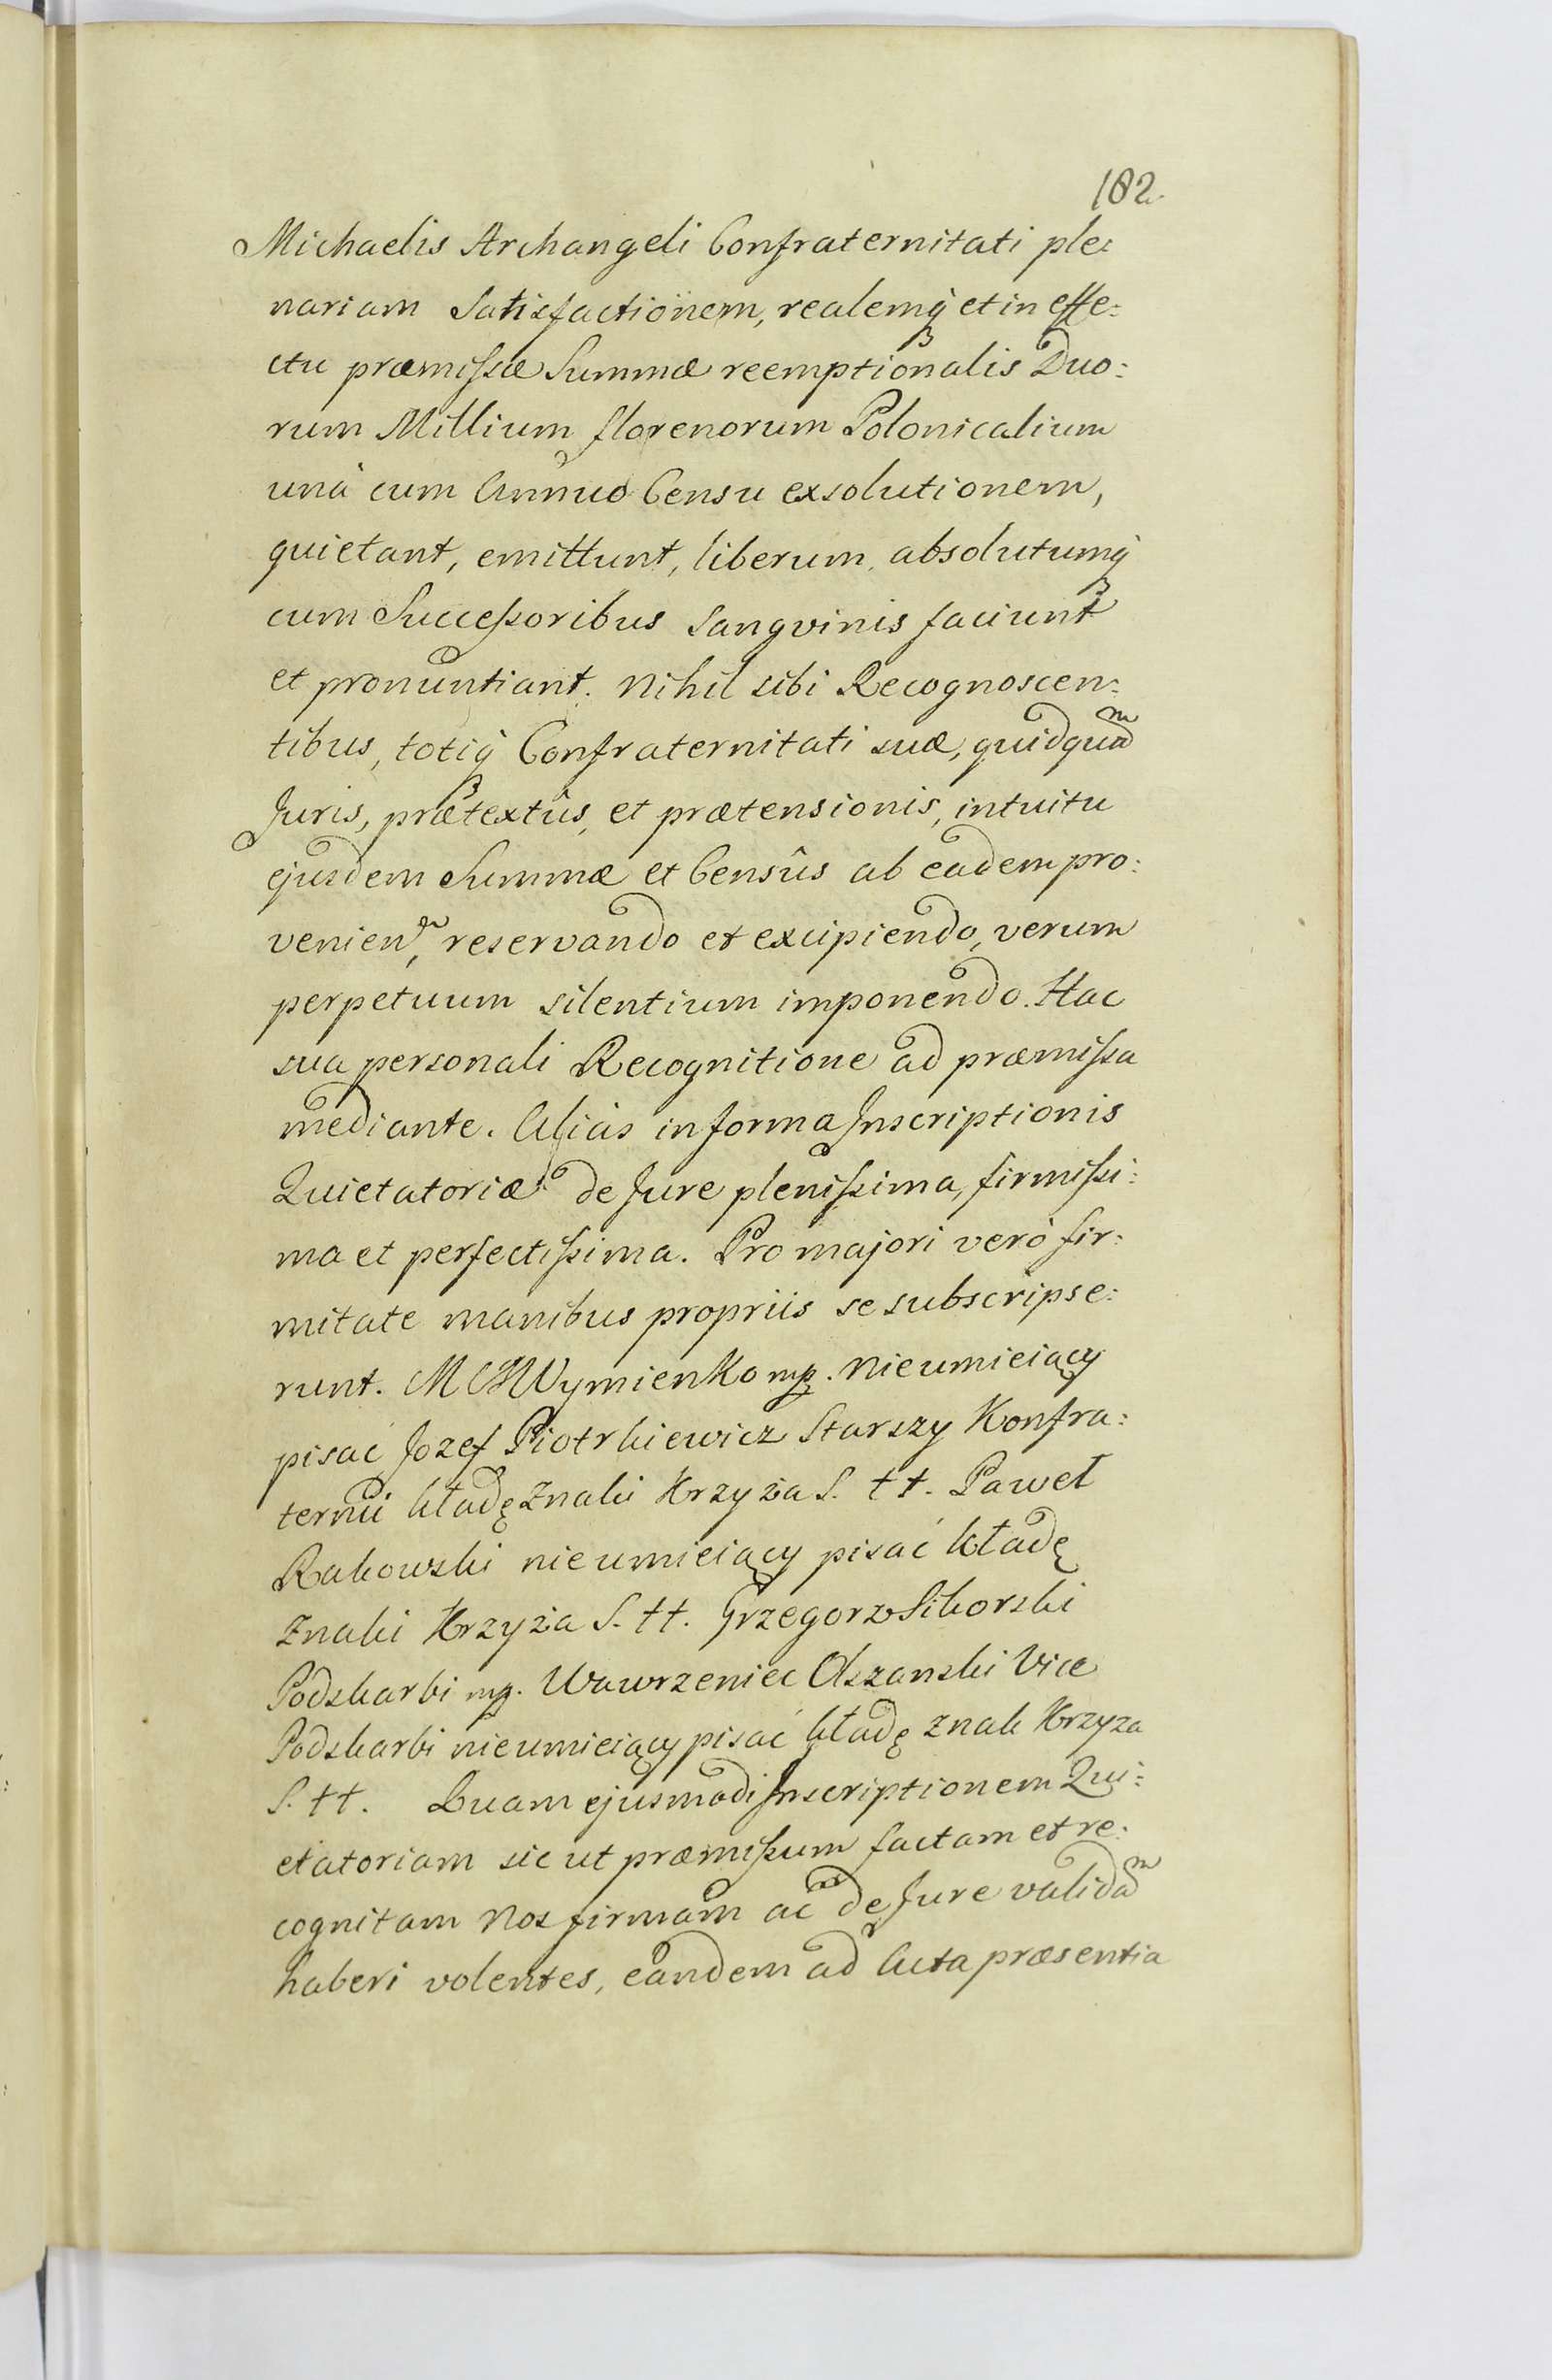 182.
Michaelis Archangeli Confraternitati ple:
nariam Satisfactionem, realemq̃ et in effe:
ctu præmissæ Summæ reemptionalis Duo:
rum Millium florenorum Polonicalium
unà cum Annuo Censu exsolutionem,
quietant, emittunt, liberum absolutumq̃
cum Successoribus Sangvinis faciunt
et pronuntiant. Nihil sibi Recognoscen:
tibus, totiq̃ Confraternitati suæ, quidquaᵐ
Juris, prætextûs, et prætensionis, intuitu
ejusdem Summæ et Censûs ab eadem pro:
venien, reservando et excipiendo, verum
perpetuum silentium imponendo. Hac
sua personali Recognitione ad præmissa
mediante. Aliàs in forma Inscriptionis
Quietatoriæ de Jure plenissima, firmissi:
ma et perfectissima. Pro majori verò fir:
mitate manibus propriis se subscripse:
runt. Wymienko mp. Nieumieiący
pisać Jozef Piotrkiewicz Starszy Konfra:
ternii kładę Znaki Krzyża S. ††. Paweł
Rakowski nieumieiący pisać kładę
Znaki Krzyża S. ††. Grzegorz Sikorski
Podskarbi mp. Wawrzeniec Olszanski Vice
Podskarbi nieumieiący pisać kładę znak Krzyza
S. ††. Quam ejusmodi Inscriptionem Qui:
etatoriam sic ut præmissum factam et re:
cognitam Nos firmam ac de Jure validaᵐ
haberi volentes, eandem ad Acta præsentia